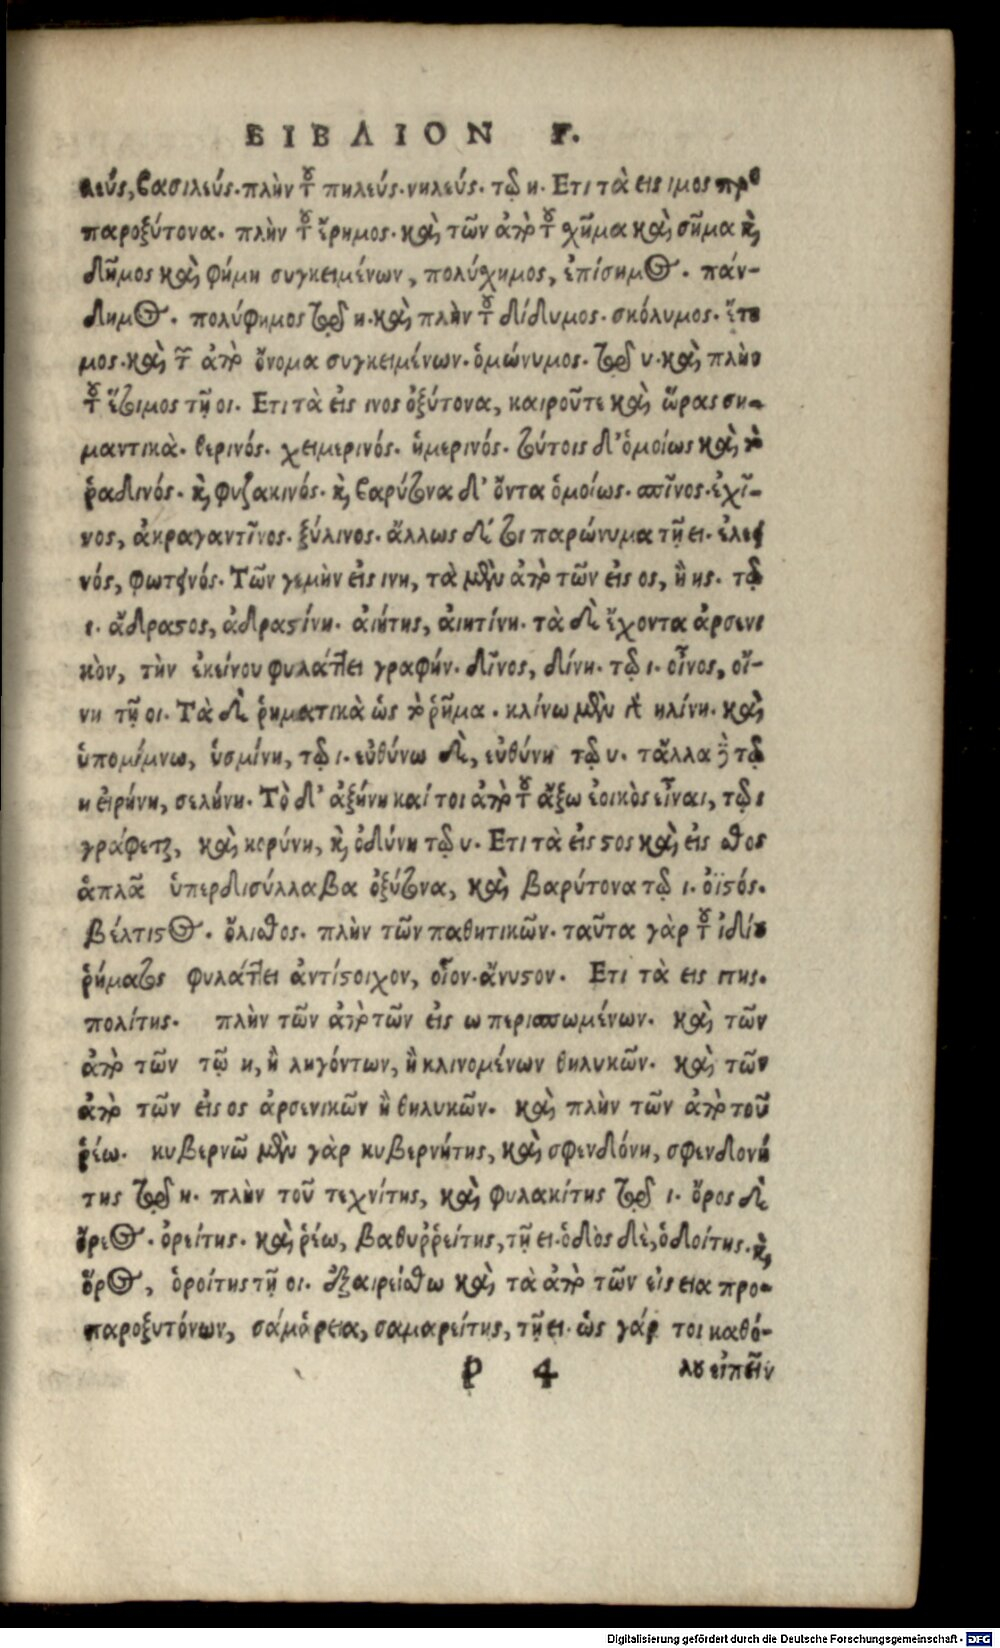 ΒΙΒΛΙΟΝ Γ.
λεύς, βασιλεύς. πλὴν τοῦ πηλεύς. νηλεύς. τῷ η. Ετι τὰ εις ιμος προ
παροξύτονα. πλὴν τοῦ ἔρημος. καὶ τῶν ἀπὸ τοῦ χῆμα καὶ σῆμα καὶ
δῆμος καὶ φήμη συγκειμένων, πολύχημος, ἐπίσημος. πάν-
δημος. πολύφημος διὰ τοῦ η. καὶ πλὴν τοῦ δίδυμος. σκόλυμος. ἔτυ
μος. καὶ τῶν ἀπὸ ὄνομα συγκειμένων. ὁμώνυμος. διὰ τοῦ υ. καὶ πλὴν
τοῦ ἕτοιμος τῇ οι. Ετι τὰ εἰς ινος ὀξύτονα, καιροῦτε καὶ ὥρας ση-
μαντικὰ. θερινός. χειμερινός. ἡμερινός. τούτοις δ' ὁμοίως καὶ τὸ
ῥαδινός. καὶ φυζακινός. καὶ βαρύτονα δ' ὄντα ὁμοίως. σπῖνος. ἐχῖ-
νος, ἀκραγαντῖνος. ξύλινος. ἄλλως δέ τοι παρώνυμα τῇ ει. ἐλει
νός, φωτεινός. Τῶν γεμὴν εἰς ινη, τὰ μὲν ἀπὸ τῶν εἰς ος, ἢ ης. τῷ
ι. ἄδραστος, ἀδραστίνη. αἰήτης, αἰητίνη. τὰ δὲ ἔχοντα ἀρσενι
κὸν, τὴν ἐκείνου φυλάττει γραφήν. δῖνος, δίνη. τῷ ι. οἶνος, οἴ-
νη τῇ οι. Τὰ δὲ ῥηματικὰ ὡς τὸ ῥῆμα. κλίνω μὲν καὶ κλίνη. καὶ
ὑπομίμνω, ὑσμίνη, τῷ ι. εὐθύνω δὲ, εὐθύνη τῷ υ. τἄλλα δὲ τῷ
η εἰρήνη, σελήνη. Τὸ δ' ἀξήνη καί τοι ἀπὸ τοῦ ἄξω ἐοικὸς εἶναι, τῷ ι
γράφεται, καὶ κορύνη, καὶ ὀδύνη τῷ υ. Ετι τὰ εἰς στος καὶ εἰς σθος
ἁπλᾶ ὑπερδισύλλαβα ὀξύτονα, καὶ βαρύτονα τῷ ι. ὀϊστός.
βέλτιστος. ὄλισθος. πλὴν τῶν παθητικῶν. ταῦτα γὰρ τοῦ ἰδίου
ῥήματος φυλάττει ἀντίστοιχον, οἷον. ἄνυστον. Ετι τὰ εις ιτης.
πολίτης. πλὴν τῶν ἀπὸ τῶν εἰς ω περισπωμένων. καὶ τῶν
ἀπὸ τῶν τῷ η, ἢ ληγόντων, ἢ κλινομένων θηλυκῶν. καὶ τῶν
ἀπὸ τῶν εἰς ος ἀρσενικῶν ἢ θηλυκῶν. καὶ πλὴν τῶν ἀπὸ τοῦ
ῥέω. κυβερνῶ μὲν γὰρ κυβερνήτης, καὶ σφενδόνη, σφενδονή
της διὰ τοῦ η. πλὴν τοῦ τεχνίτης, καὶ φυλακίτης διὰ τοῦ ι. ὄρος δὲ
ὄρεος. ὀρείτης. καὶ ῥέω, βαθυῤῥείτης, τῇ ει. ὁδὸς δὲ, ὁδοίτης. καὶ
ὅρος, ὁροίτης τῇ οι. ἐξαιρείσθω καὶ τὰ ἀπὸ τῶν εἰς εια προ-
παροξυτόνων, σαμάρεια, σαμαρείτης, τῇ ει. ὡς γάρ τοι καθό-
P 4 λου εἰπεῖν
Digitalisierung gefördert durch die Deutsche Forschungsgemeinschaft - DFG